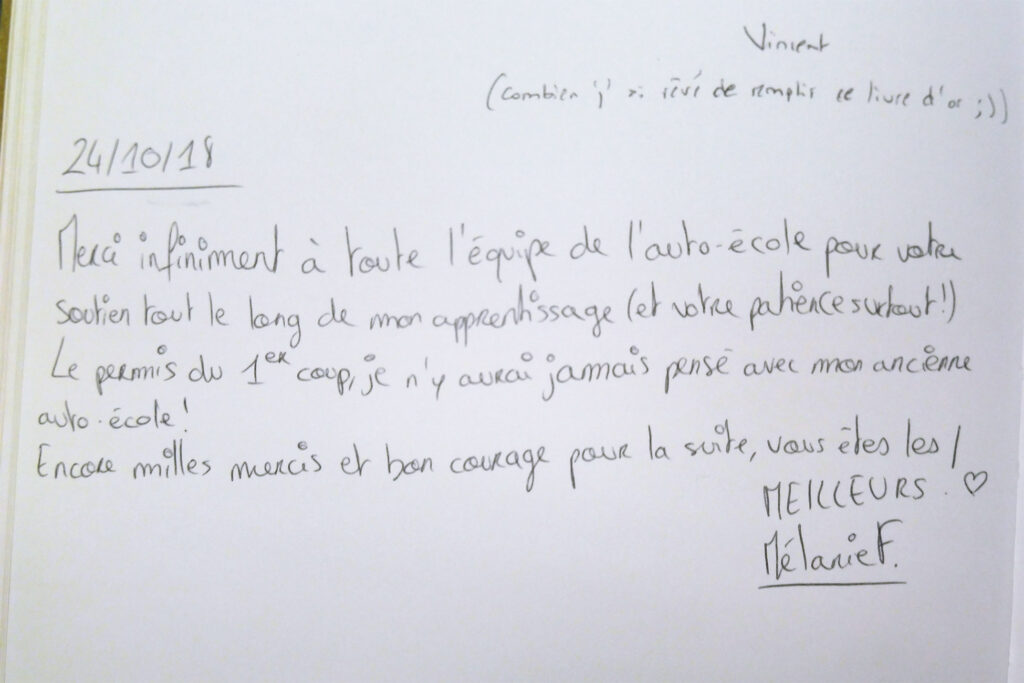 Vincent
(combien j'ai rêvé de remplir ce livre d'or ;))
24/10/18
Merci infiniment à toute l'équipe de l'auto-école pour votre
soutien tout le long de mon apprentissage (et votre patience surtout!)
Le permis du 1er coup, je n'y aurai jamais pensé avec mon ancienne
auto-école!
Encore milles mercis et bon courage pour la suite, vous êtes les
MEILLEURS. ♡
Mélanie F.